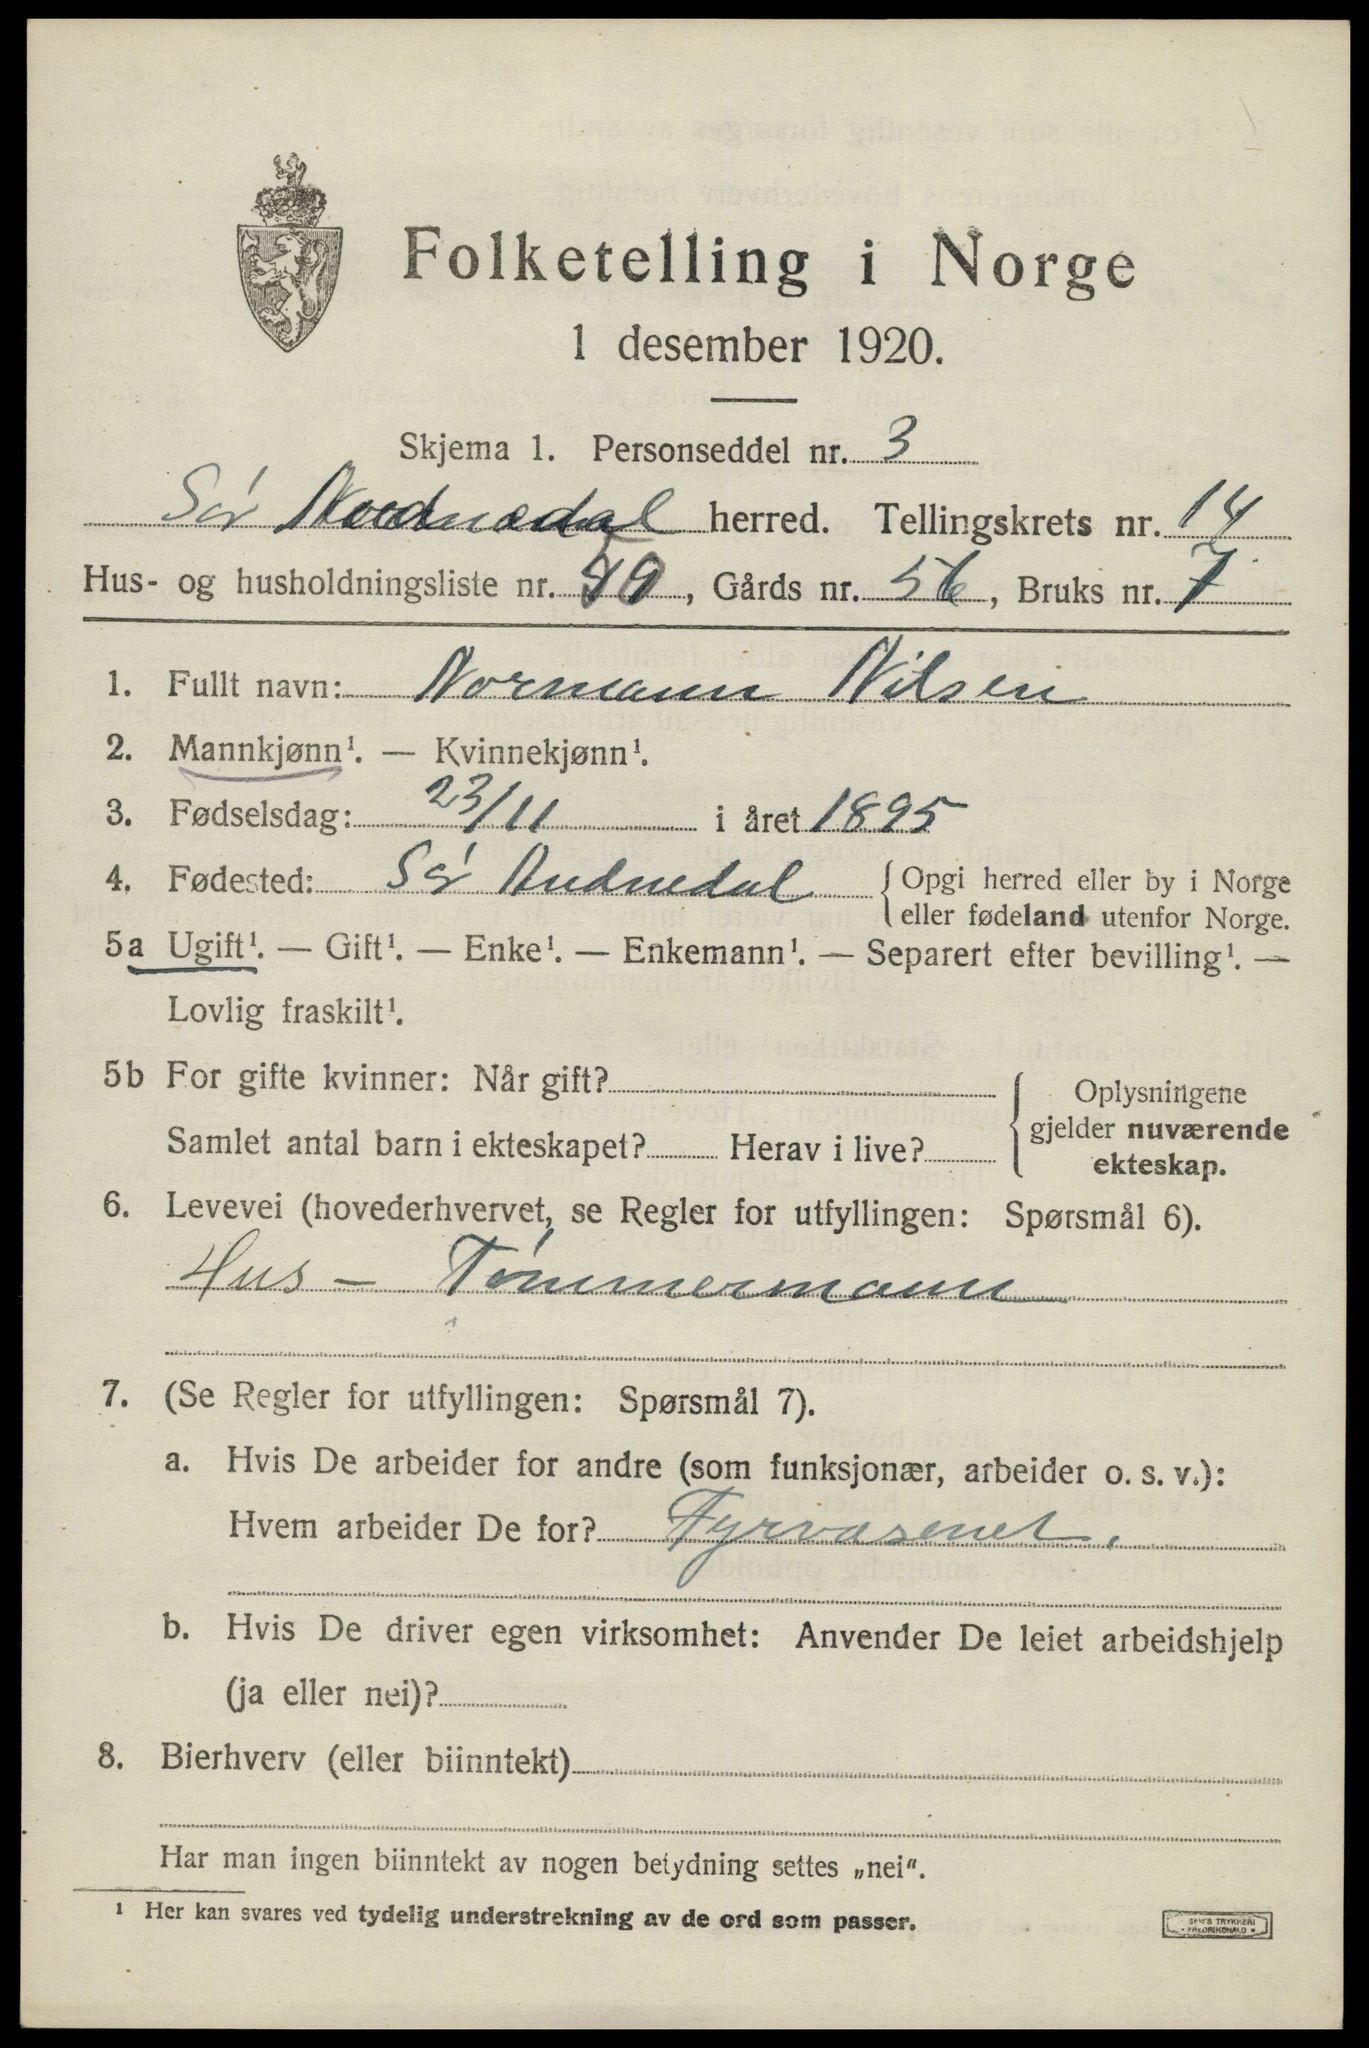 Folketelling i Norge
1 desember 1920.
Skjema 1. Personseddel nr. 3
Sør Audnedal herred. Tellingskrets nr. 14
Hus- og husholdningsliste nr. 50, Gårds nr. 56, Bruks nr. 7
1. Fullt navn: Normann Nilsen
2. Mannkjønn¹. — Kvinnekjønn¹.
3. Fødselsdag: 23/11 i året 1895
4. Fødested: Sør Audnedal { Opgi herred eller by i Norge
eller fødeland utenfor Norge.
5a Ugift¹. — Gift¹. — Enke¹. — Enkemann¹. — Separert efter bevilling¹. —
Lovlig fraskilt¹.
5b For gifte kvinner: Når gift?
Samlet antal barn i ekteskapet? Herav i live?
Oplysningene
gjelder nuværende
ekteskap.
6. Levevei (hovederhvervet, se Regler for utfyllingen: Spørsmål 6).
Hus - Tømmermann
7. (Se Regler for utfyllingen: Spørsmål 7).
a. Hvis De arbeider for andre (som funksjonær, arbeider o. s. v.):
Hvem arbeider De for? Fyrvæsenet.
b. Hvis De driver egen virksomhet: Anvender De leiet arbeidshjelp
(ja eller nei)?
8. Bierhverv (eller biinntekt)
Har man ingen biinntekt av nogen betydning settes „nei“.
¹ Her kan svares ved tydelig understrekning av de ord som passer.
TRYKKERI
FREDRIKSHALD